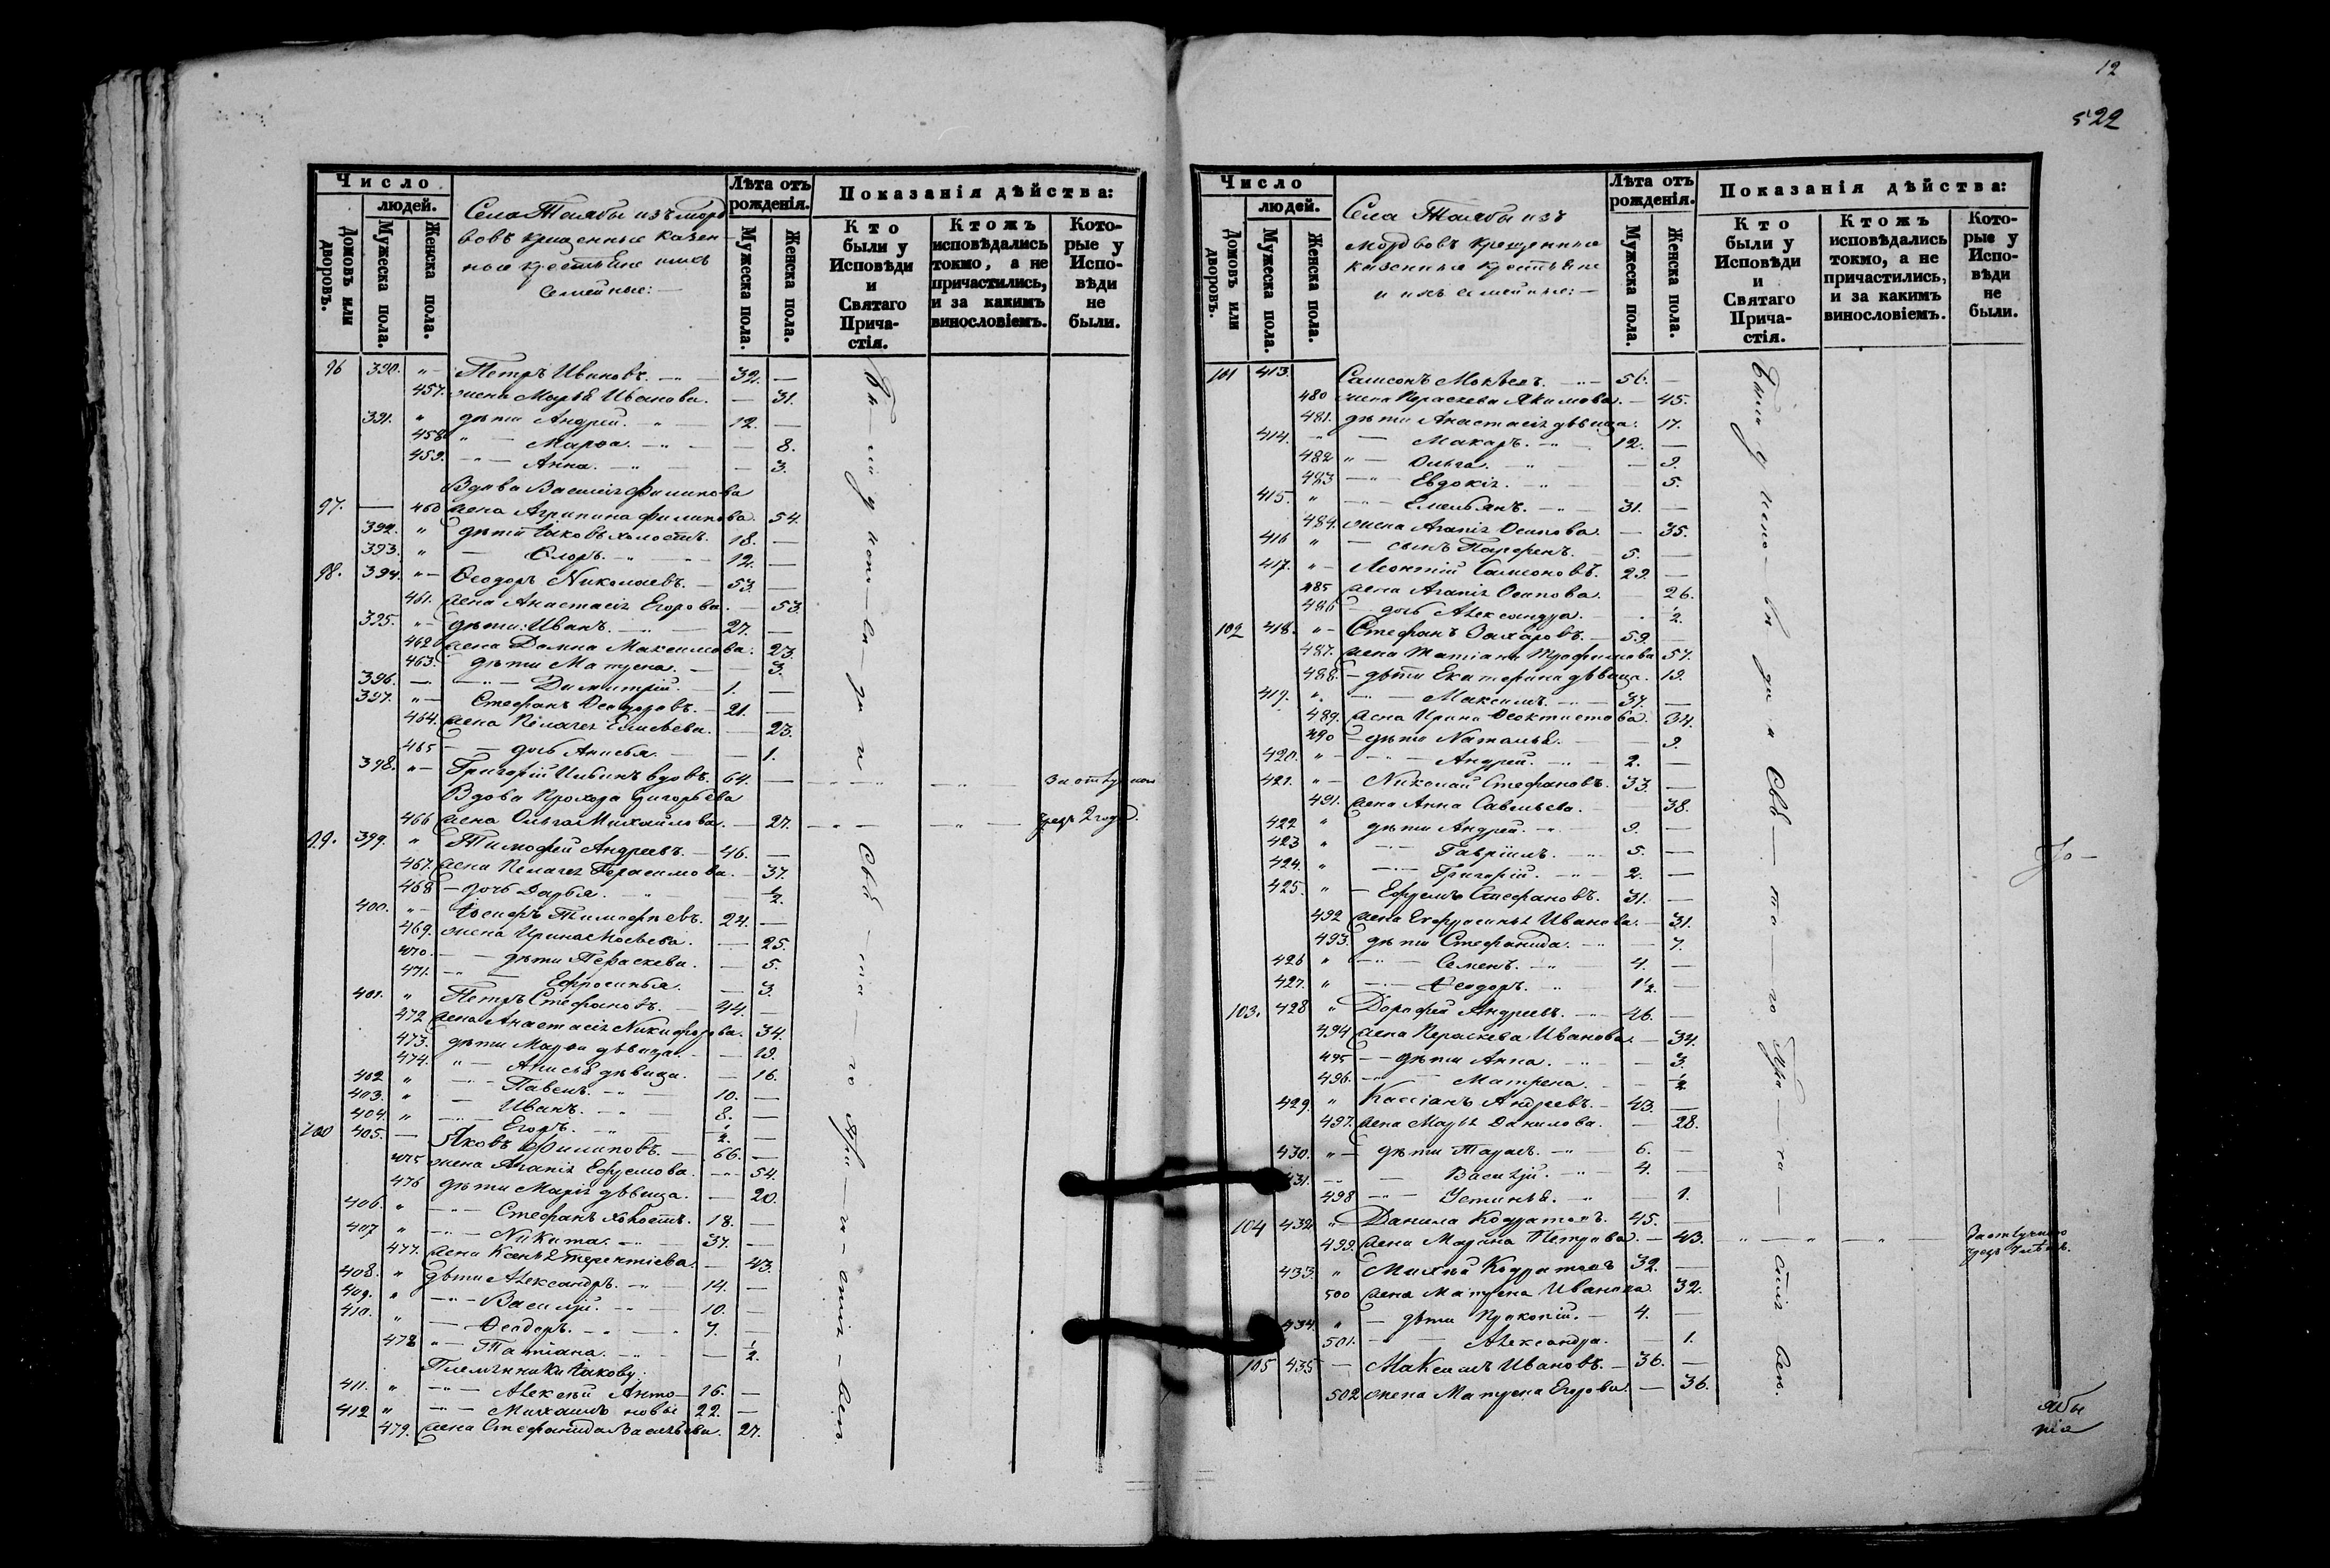 12
522
Число
людей.
Домовъ или дворовъ.
Мужеска пола.
Женска пола.
Села Таябы изъ морд
вовъ крещенные казен
ные крестьяне ихъ
семейные: —
Лѣта отъ рожденія.
Мужеска пола.
Женска пола.
Показанія дѣйства:
Кто были у Исповѣди и Святаго Прича-стія.
Ктожъ исповѣдались токмо, а не причастились, и за какимъ винословіемъ.
Кото-рые у Испо-вѣди не были.
96 390. „ Петръ Ивановъ. 32. —
457. жена Марья Иванова. — 31.
391. „ дѣти Андрей. 12. —
458 „ — Марѳа. — 8.
459. „ — Анна. — 3.
Вдова Василія Филипова
97. — 460 жена Агрипина Филипова. 54.
392. „ дѣти Іаковъ холостъ. 18. —
393. „ — Флоръ. 12. —
98. 394. „ Ѳеодоръ Николаевъ. 53. —
461. жена Анастасія Егорова. — 53.
395. „ дѣти: Иванъ. 27. —
462 жена Домна Максимова. 23.
463. дѣти Матрена. — 3.
396. — Димитрій. 1. —
397. „ Стефанъ Ѳеодоровъ. 21. —
464. жена Пелагея Елисѣева. — 23.
465 — дочь Анисья. — 1.
398. „ Григорій Ильинъ вдовъ. 64. —
Вдова Прохора Григорьева
466 жена Ольга Михайлова. — 27.
чрезъ 2 года.
99. 399. „ Тимофей Андреевъ. 46. —
467. жена Пелагея Герасимова. — 37.
468 — дочь Дарья. — 1/2.
400. „ Іосифъ Тимофѣевъ. 24. —
469. жена Ирина Моѵсеева. — 25.
470. — дѣти Параскева. — 5.
471. — Ефросинья. — 3.
401. „ Петръ Стефановъ. 44. —
472 жена Анастасія Никифорова. 34.
473. дѣти Марѳа дѣвица. — 19.
474. „ — Анисья дѣвица. — 16.
402 „ — Павелъ. 10. —
403. „ — Иванъ. 8. —
404. „ — Егоръ. 1/2. —
100 405. — Яковъ Филиповъ. 66. —
475 жена Агапія Ефремова. 54.
476 дѣти Марія дѣвица. — 20.
406. „ — Стефанъ холостъ. 18. —
407 „ — Никита. 37. —
477. жена Ксенья Терентіева. — 43.
408. „ дѣти Александръ. 14. —
409. „ — Василій. 10. —
410. „ — Ѳеодоръ. 7. —
478 „ — Татіана. — 1/2.
Племянники Іакову:
411. „ — Алексѣй Анто- 16. —
412 „ — Михаилъ новы 22. —
479. жена Стефанида Васильева. 27.
Число
людей.
Домовъ или дворовъ.
Мужеска пола.
Женска пола.
Села Таябы изъ
мордвовъ крещенные
казенные крестьяне
и ихъ семейные: —
Лѣта отъ рожденія.
Мужеска пола.
Женска пола.
Показанія дѣйства:
Кто были у Исповѣди и Святаго Прича-стія.
Ктожъ исповѣдались токмо, а не причастились, и за какимъ винословіемъ.
Кото-рые у Испо-вѣди не были.
101 413. Самсонъ Мокѣевъ. 56. —
480 жена Параскева Якимова. — 45.
481. дѣти Анастасія дѣвица. 17.
414. „ — Макаръ. 12. —
482 „ — Ольга. — 9.
483 — Евдокія. — 5.
415. „ — Емельянъ. 31. —
484. жена Агапія Осипова. — 35.
416 „ — сынъ Парфенъ. 5. —
417. „ — Леонтій Самсоновъ. 29. —
485 жена Агапія Осипова. — 26.
486 — дочь Александра. 1/2.
102 418. „ Стефанъ Захаровъ. 59. —
487. жена Татіана Трофимова 57.
488. — дѣти Екатерина дѣвица. 19.
419. „ — Максимъ. 37. —
489. жена Ирина Ѳеоктистова. 34.
490 — дѣти Наталья. — 9.
420. „ — Андрей. 2. —
421. „ Николай Стефановъ. 33. —
491. жена Анна Савельева. 38.
422 „ дѣти Андрей. 9. —
423 „ — Гавріилъ. 5. —
424. „ — Григорій. 2. —
425. „ — Ефремъ Стефановъ. 31. —
492 жена Евфросинья Иванова. — 31.
493. дѣти Стефанида. — 7.
426 „ — Семенъ. 4. —
427. „ — Ѳеодоръ. 1/2. —
103. 428 „ Дорофей Андреевъ. 46. —
494 жена Параскева Иванова. — 34.
495 — дѣти Анна. — 3.
496. — Матрена. — 1/2
429. „ Кассіанъ Андреевъ. 43. —
497. жена Марья Данилова. — 28.
430. „ — дѣти Тарасъ. 6. —
431. — Василій. 4. —
498 — Устинья. — 1.
104 432 „ Данила Кодратьевъ. 45. —
499. жена Марина Петрова. — 43.
433. „ Михей Кодратьевъ 32. —
500 жена Матрена Иванова. 32.
434. „ — дѣти Прокопій. 4. —
501. — Александра. — 1.
105 435 — Максимъ Ивановъ. 36. —
502 жена Матрена Егорова. — 36.